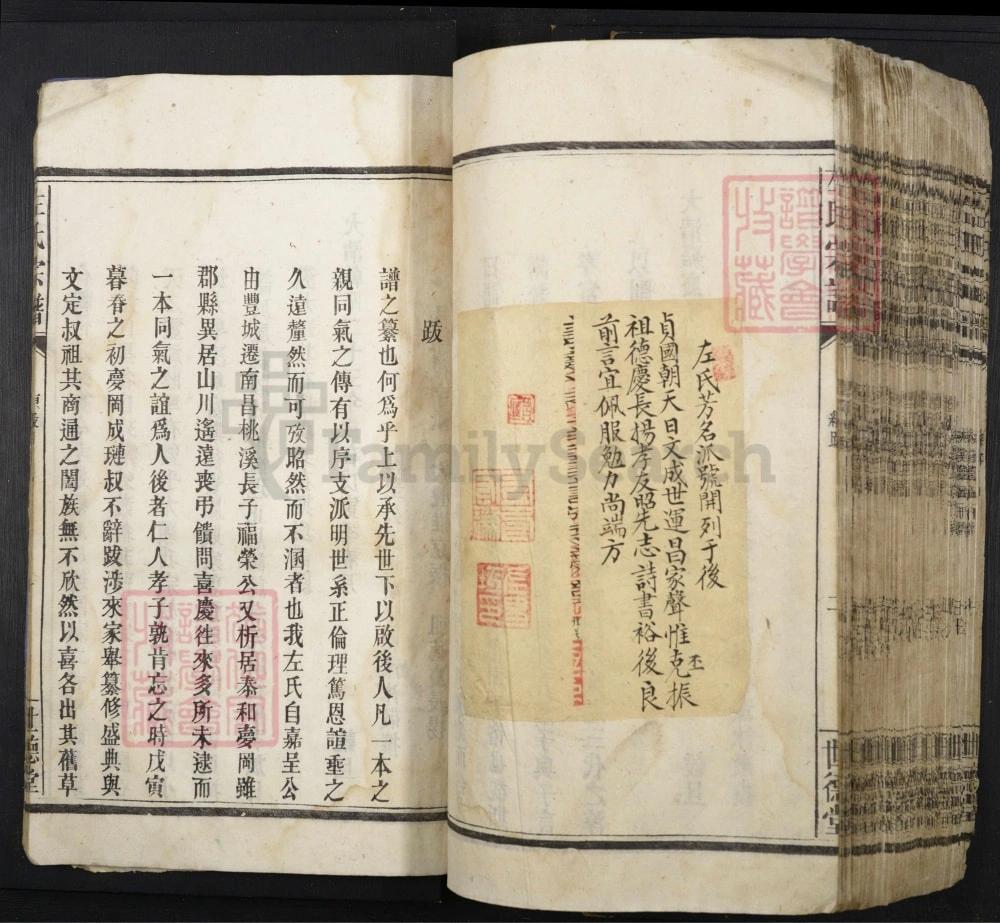 左氏宗譜
譜學會
收藏
世德堂
左氏芳名派號開列于後
貞國朝天日文成世運昌家聲惟克丕振
祖德慶長揚孝友昭先志詩書裕後良
前言宜佩服勉力尚端方
跋
譜之纂也何爲乎上以承先世下以啟後人凡一本之
親同氣之傳有以序支派明世系正倫理篤恩誼垂之
久遠釐然而可攷昭然而不溷者也我左氏自嘉呈公
由豐城遷南昌桃溪長子福榮公又析居泰和夢岡雖
郡縣異居山川遙遠喪弔饋問喜慶往來多所未逮而
一本同氣之誼爲人後者仁人孝子孰肯忘之時戊寅
暮春之初夢岡成璉叔不辭跋涉來家舉纂修盛典與
文定叔祖其商通之闔族無不欣然以喜各出其舊草
左氏宗譜
世德堂
FamilySearch